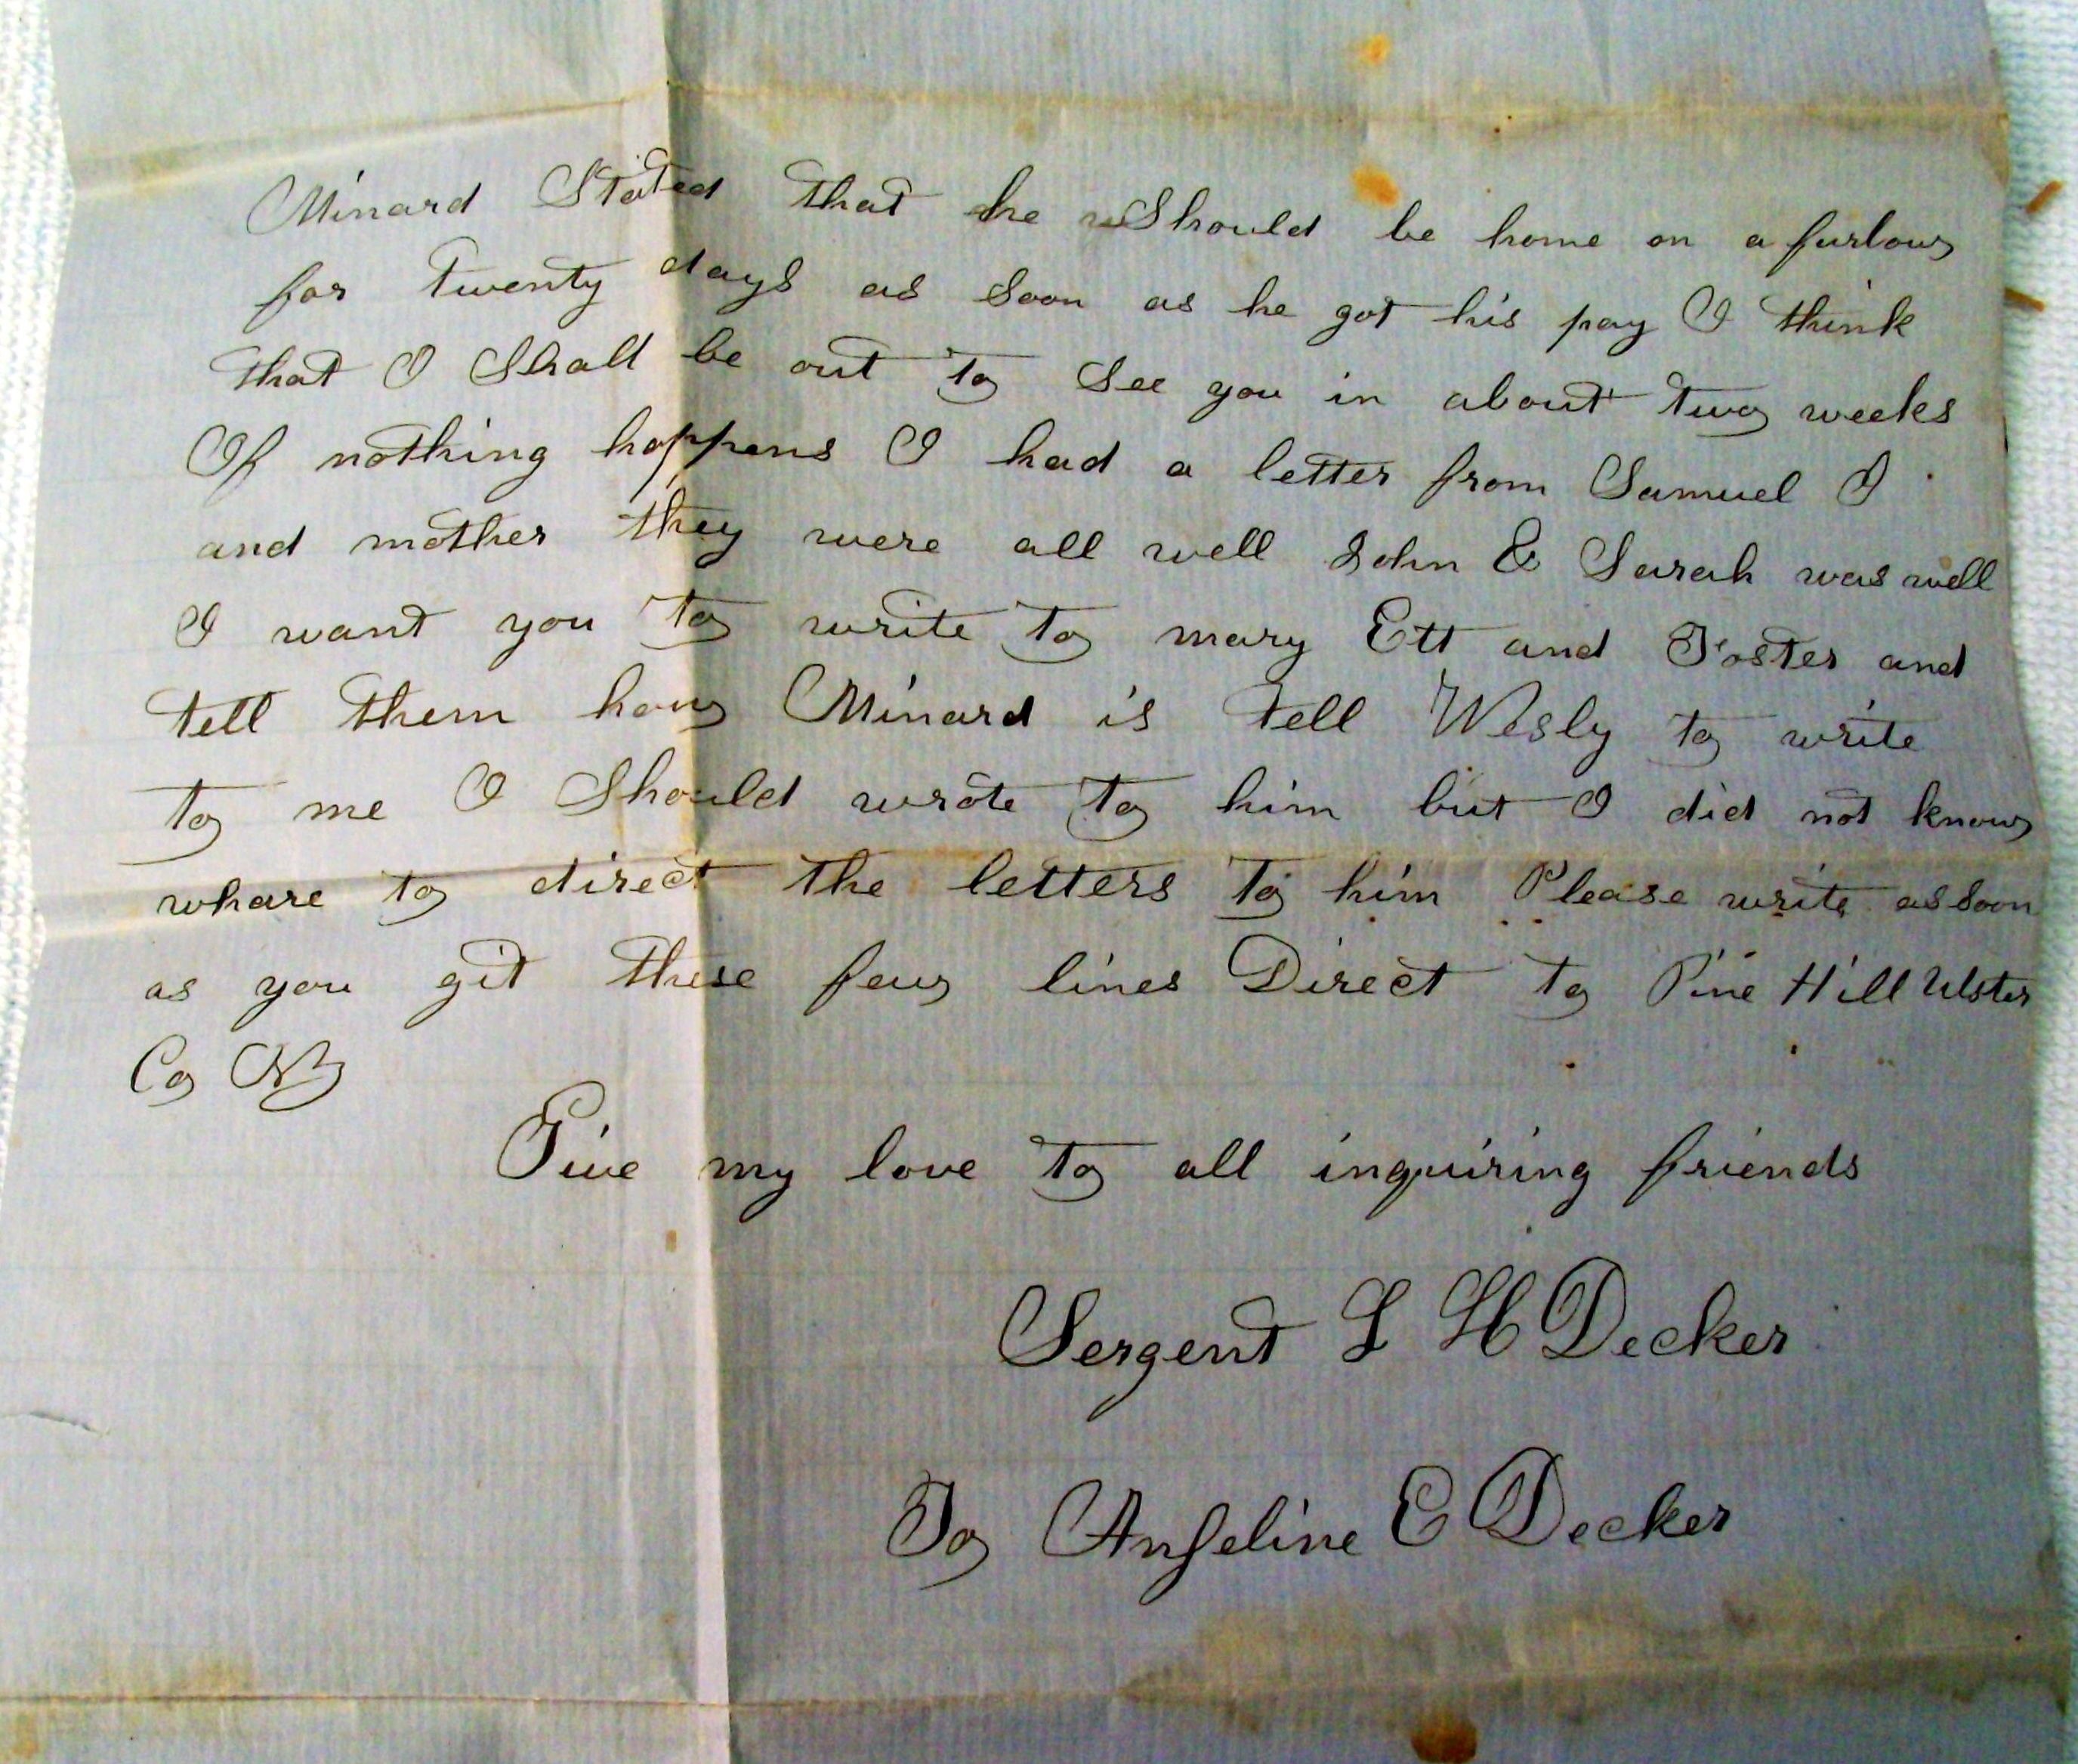 Minard Stated that he Should be home on a furlow
for twenty days as Soon as he got his pay I think
that I Shall be out to See you in about two weeks
If nothing happens I had a letter from Samuel I
and mother they were all well John & Sarah was well
I want you to write to mary Ett and Foster and
tell them how Minard is tell Wesly to write
to me I Should wrote to him but I did not know
whare to direct the letters to him Please write as soon
as you git these few lines Direct to Pine Hill Ulster
Co NY
Give my love to all inquiring friends
Sergent L H Decker
To Angeline E Decker